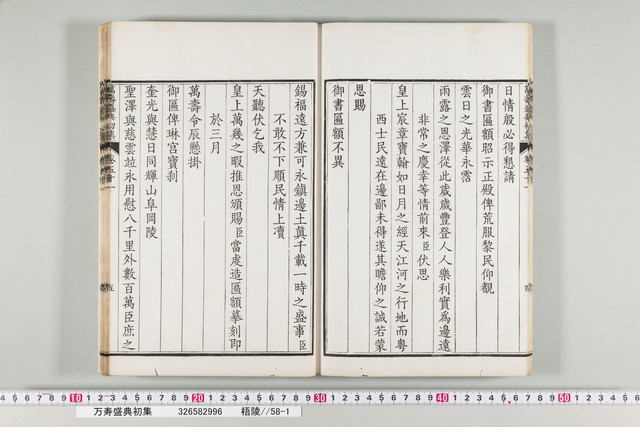 日情殷必得懇請
御書匾額昭示正殿俾荒服黎民仰覩
雲日之光華永霑
雨露之恩澤從此歲歲豐登人人樂利實爲邊遠
非常之慶幸等情前來臣伏思
皇上宸章寶翰如日月之經天江河之行地而粤
西士民遠在邊鄙未得遂其瞻仰之誠若蒙
恩賜
御書匾額不異
錫福遠方兼可永鎮邊土眞千載一時之盛事臣
不敢不下順民情上凟
天聽伏乞我
皇上萬幾之暇推恩頒賜臣當虔造匾額摹刻即
於三月
萬壽令辰懸掛
御匾俾琳宮寶刹
奎光與慧日同輝山阜岡陵
聖澤與慈雲竝永用慰八千里外數百萬臣庶之
五
万寿盛典初集 326582996 梧陵//58-1
10 20 30 40 50